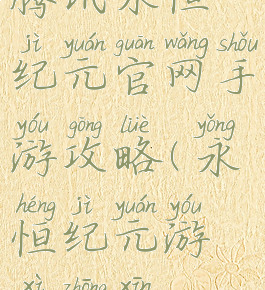 腾讯永恒
jì yuán guān wǎng shǒu
纪元官网手
yóu gōng lüè yǒng
游攻略(永
héng jì yuán yóu
恒纪元游
xì zhōng xīn